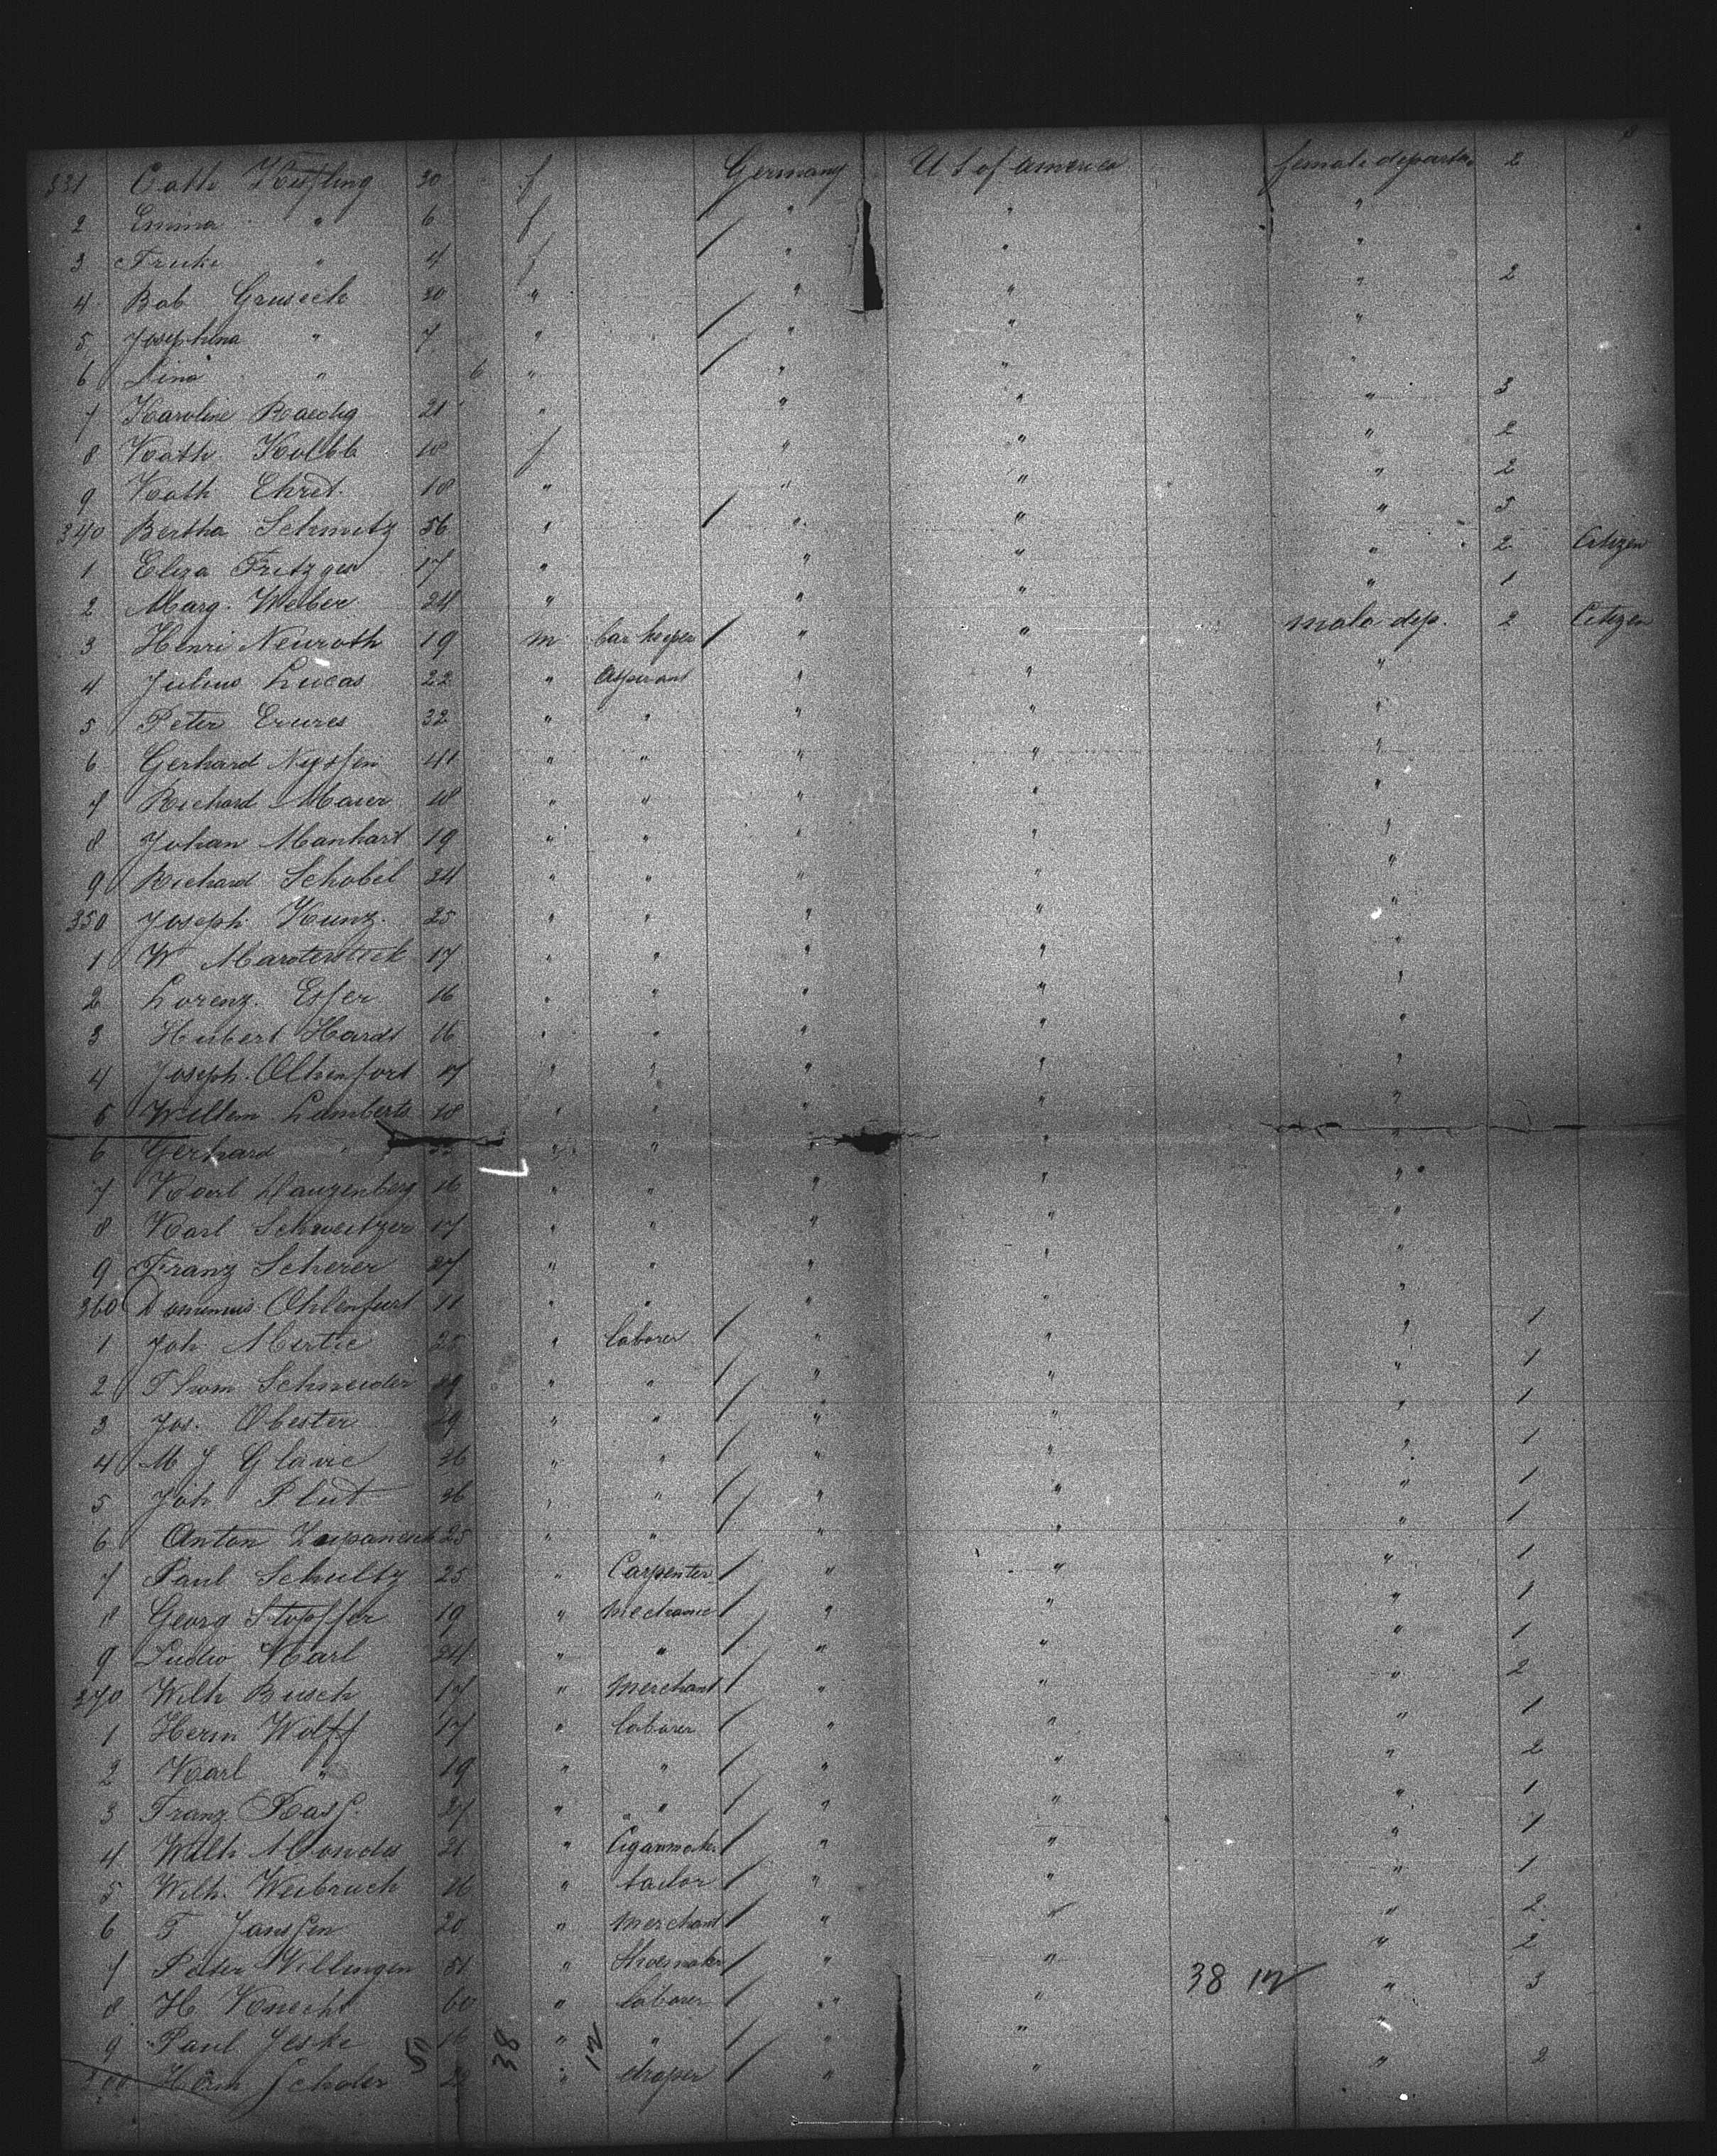 331 Cath Kissling 30 f Germany U S of america female departm 2
2 Emma " 6 f " " "
3 " 4 f " " "
4 Bab 30 " " " " 2
5 Josephina " 7 " " " "
6 Lina " 6 " " " "
7 Karoline Raedig 21 " " " " 3
8 Kath Kolbb 18 f " " " 2
9 Kath Ehret. 18 " " " " 2
340 Bertha Schmitz 56 " " " " 3
1 Eliza Fritzges 17 " " " " 2 Citizen
2 Marg. Weber 24 " " " " 1
3 Henri Neuroth 19 m barkeeper " " male dep. 2 Citizen
4 Julius Lucas 22 " Aspirant " " "
5 Peter 32 " " " " "
6 Gerhard Nyssen 41 " " " " "
7 Richard Maier 18 " " " " "
8 Johan Manhart 19 " " " " "
9 Richard Schobel 24 " " " " "
350 Joseph Kunz. 25 " " " " "
1 W 17 " " " " "
2 Lorenz. Esser 16 " " " " "
3 Hubert Hardt 16 " " " " "
4 Joseph. 17 " " " " "
5 Willem Lamberts 18 " " " " "
6 Gerhard " " " " " "
7 Karl 16 " " " " "
8 Karl Schweitzer 17 " " " " "
9 Franz Scherer 27 " " " " "
360 Ohlenfurt 11 " " " " "
1 Joh Mertic 25 " laborer " " " 1
2 Thom Schneider " " " " " 1
3 Jos. Obester 29 " " " " " 1
4 M J Glavic 36 " " " " " 1
5 Joh Plut 36 " " " " " 1
6 Anton 25 " " " " " 1
7 Paul Schultz 25 " Carpenter " " " 1
8 Georg Stopffer 19 " mechanic " " " 1
9 Karl 24 " " " " " 1
370 Wilh Busch 17 " merchant " " " 2
1 Herm Wolff 17 " laborer " " " 1
2 Karl " 19 " " " " " 2
3 Franz Rass. 27 " " " " " 1
4 Wilh 21 " Cigarmaker " " " 1
5 Wilh. Weibruch 16 " tailor " " " 1
6 F Janssen 20 " merchant " " " 2
7 Peter Willingen 51 " Shoemaker " " " 2
8 H. Knecht 60 " laborer " " 38 12 " 3
9 Paul Jeske 16 " " " " "
Herm Scholer 22 " draper " " " 2
50 38 12